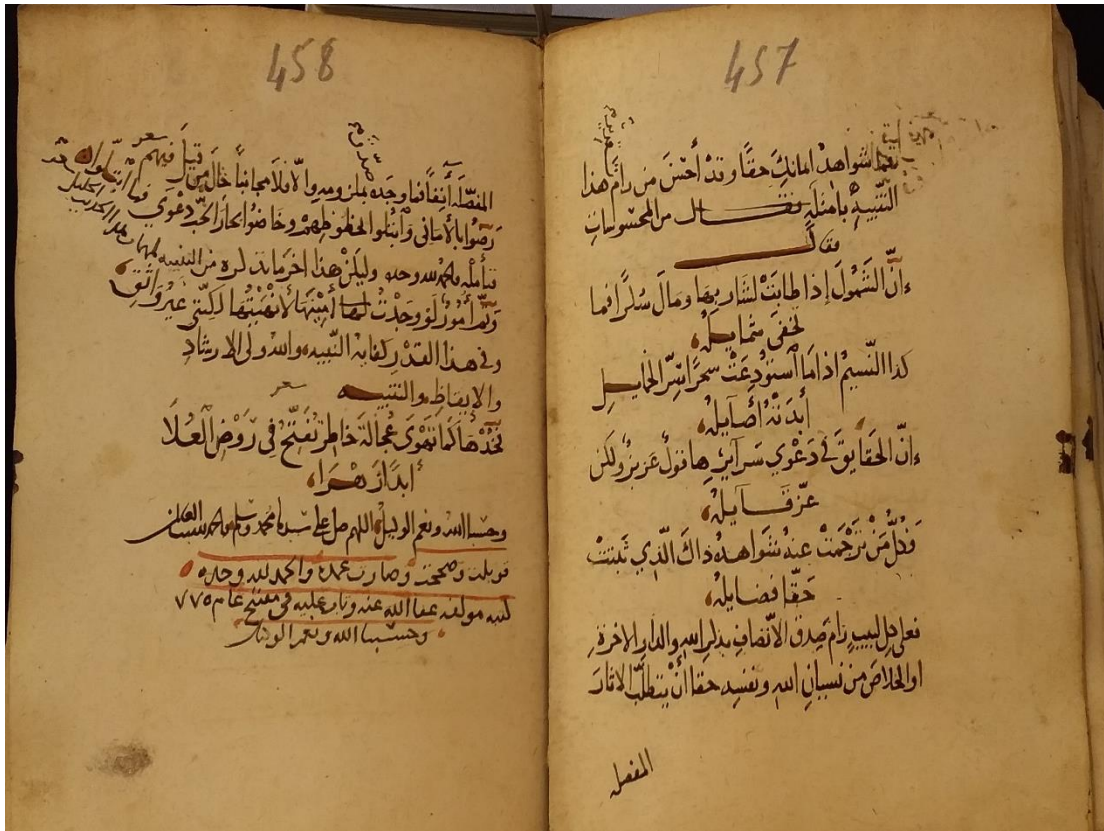 457
فما شواهد امانك حقا وقد أحسن من رام هذا
التنبيه بأمثلة فقال من المحسوسات
فقال
إن الشمول إذا طابت لشاربها ومال سكرا فما
تخفى شمايله
كذا النسيم اذا ما استودعت سحرا سر الخمايل
أبدته أصايله
إن الحقايق في دعوى سرايرها قول عزيز ولكن
عز قايله
وكل من ترجمت عنه شواهده ذاك الذي ثبتت
حقا فضايله
فعلى كل لبيب رام صدق الاتصاف بذكر الله والدار الاخرة
او الخلاص من نسيان الله ونفسه حقا أن يتطلب الاثار
المفصل
458
المفصلة آنفا فما وجده فليزمه والا فلا مجانبا حال من قيل فيهم شعر
رضوا بالأماني وابتلوا بحظوظهم وخاضوا بحار الحب دعوى فما ابتلوا
فتأمله والحمد لله وحده وليكن هذا اخر ما نذكره من التنبيه
وثم أمور لو وجدت لها أمينها لأفشيتها لكنني غير واثق
وفي هذا القدر كفاية النبيه والله ولي الارشاد
والإيقاظ والتنبيه شعر
فخذها كما تهوى عجالة خاطر تفتح في روض العلا
أبدا زهرا
وحسبنا الله ونعم الوكيل اللهم صل على سيدنا محمد وسلم والحمد لله رب العالمين
قوبلت وصححت وصارت عمدة والحمد لله وحده
كتبه مولفه عفا الله عنه وتاب عليه في مفتتح عام ٧٧٥
وحسبنا الله ونعم الوكيل